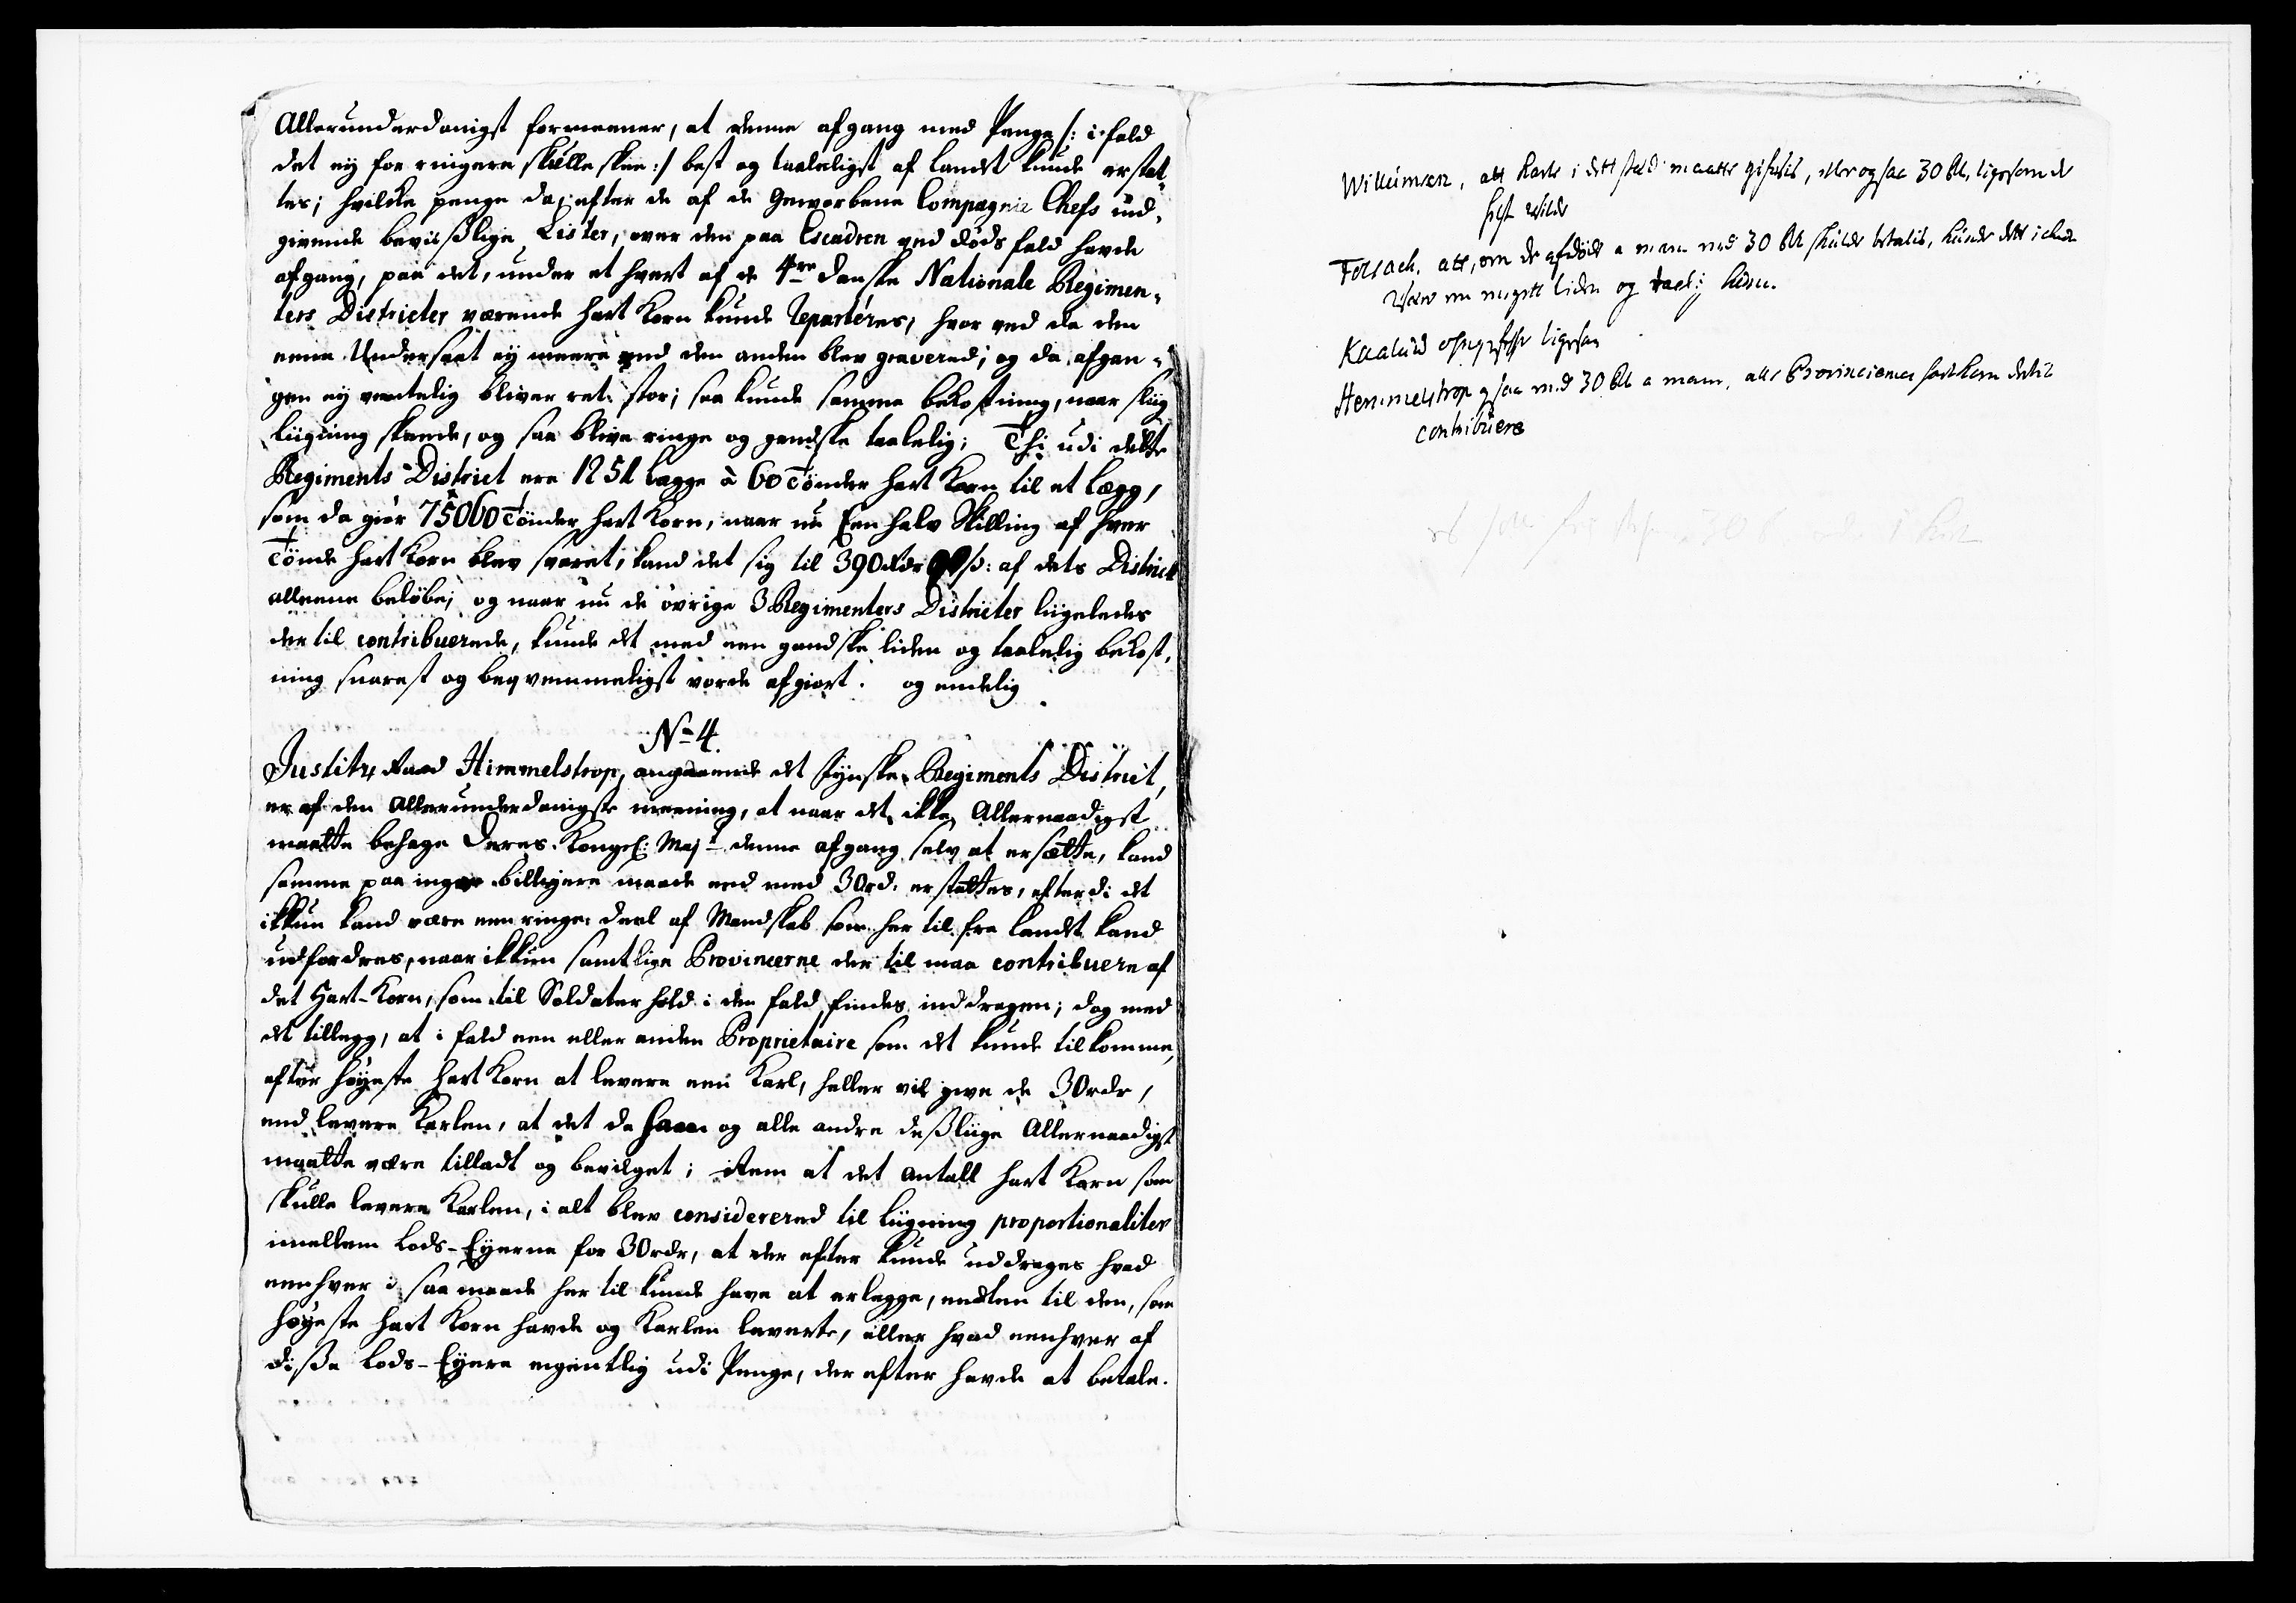 Allerunderdanigst formeener, at denne afgang med Penge /: i fald
det ey for ringere skulle skee :/ best og taaleligst af landet kunde erstat-
tes; hvilcke penge da, efter de af de Gevorbene Compagnie Chefs ind-
givende bevislige Lister, over den paa Escadren ved døds fald havde
afgang, paa det, under et hvert af de 4re danske Nationale Regimen-
ters Districter værende hart Korn kunde Repartéres, hvor ved da den
eene Undersaat ey meere end den anden blev graverad; og da afgan-
gen ey ventelig bliver ret stor; saa kunde samme bekostning, naar slig
liigning skeede, og saa blive ringe og gandske taalelig; Thi udi dette
Regiments District ere 1251 lægge à 60 Tönder hart Korn til et Lægg,
som da giør 75060 Tönder hart Korn, naar nu Een halv Skilling af hver
Tönde hart Korn blev svaret, kand det sig til 390 Rdr ß: af dets District
alleene beløbe; og naar nu de øvrige 3 Regimenters Districter liigeledes
der til contribuerede, kunde det med een gandske liden og taalelig bekost-
ning snarest og beqvemmeligst vorde afgiort. og endelig
No 4.
Justitz Raad Himmelstrop, angaaende det Fynske Regiments District,
er af den Allerunderdanigste meening, at naar det ikke Allernaadigst
maatte behage Deres Kongel: Majt denne afgang selv at ersætte, kand
samme paa ingen billigere maade end med 30 rd. erstattes, efterdi det
ikkun kand være een ringe deel af Mandskab som her til fra landet kand
udfordres, naar ikkun samtlige Provincerne der til maa contribuere af
det Hart-Korn, som til Soldater hold i den fald findes inddragen; dog med
det tillegg, at i fald een eller anden Proprietaire som det kunde tilkomme,
efter høyeste hart Korn at levere een Karl, heller vil give de 30 rdr,
end levere Karlen, at det da ham og alle andre desliige Allernaadigst
maatte være tilladt og bevilget; item at det antall hart Korn som
skulle levere Karlen, i alt blev considererad til liigning proportionaliter
imellem Lods-Eyerne for 30 rdr, at der efter kunde uddrages hvad
eenhver i saa maade her til kunde have at erlegge, endten til den, som
høyeste hart Korn havde og Karlen leverte, eller hvad eenhver af
disse Lods-Eyere egentlig udi Penge, der efter havde at betale.
Willumsen, att Karle i dett sted maatte gifvis, eller og saa 30 Rd, ligesom de
helst vilde
att, om de afdöde a mann med 30 Rd skulde betalis, kunde dett
liden og
Kaalund ligesaa
Hemmelstrop og saa med 30 Rd a mann, alle Provinciernes hartkorn dertil
contribuere